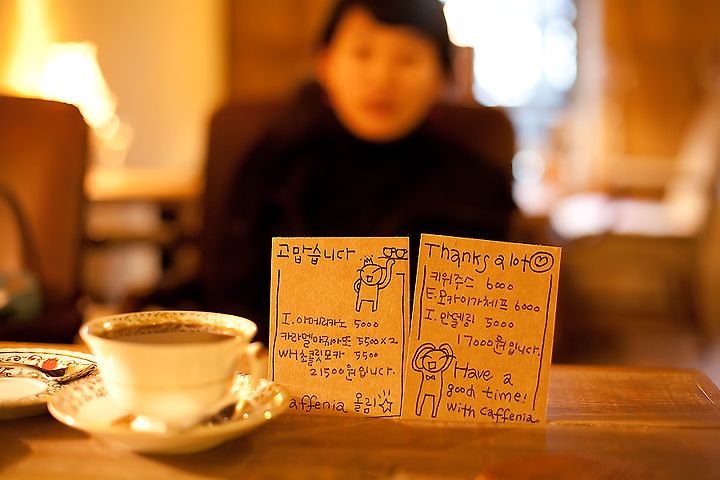 고맙습니다
I. 아메리카노 5000
카라멜마끼아또 5500x2
WH초콜릿모카 5500
21500원입니다.
affenia 올림
Thanks a lot
키위주스 6000
E. 모카이가체프 6000
I. 만델링 5000
17000원입니다.
Have a
good time!
with caffenia.